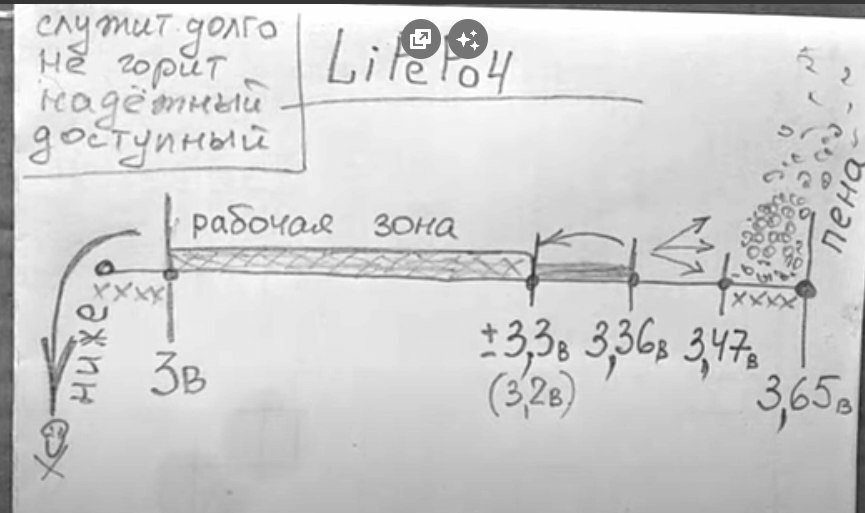 служит долго
не горит
надёжный
доступный
LiFePo4
рабочая зона
пена
хххх
хххх
ниже
3в
± 3,3в
(3,2в)
3,36в
3,47в
3,65в